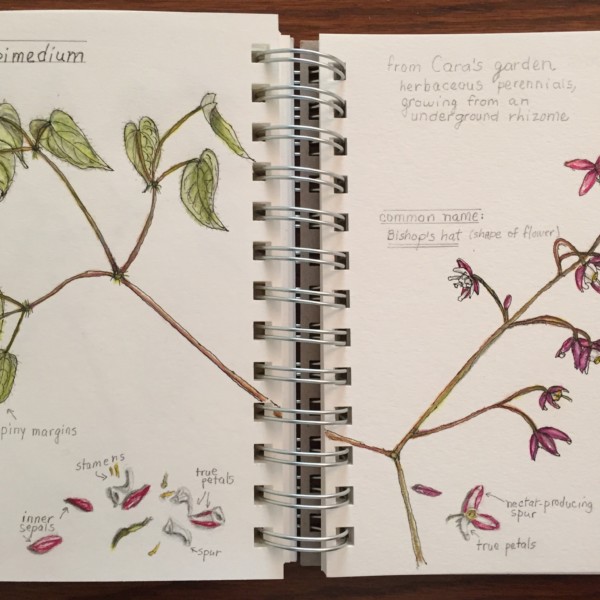 pimedium
piny margins
stamens
true
petals
inner
sepals
spur
from Cara's garden
herbaceous perennials,
growing from an
underground rhizome
common name:
Bishop's hat (shape of flower)
nectar-producing
spur
true petals